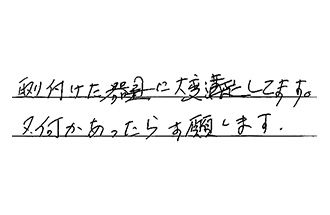 取付けた器量に大変満足してます。
又何かあったらお願します.